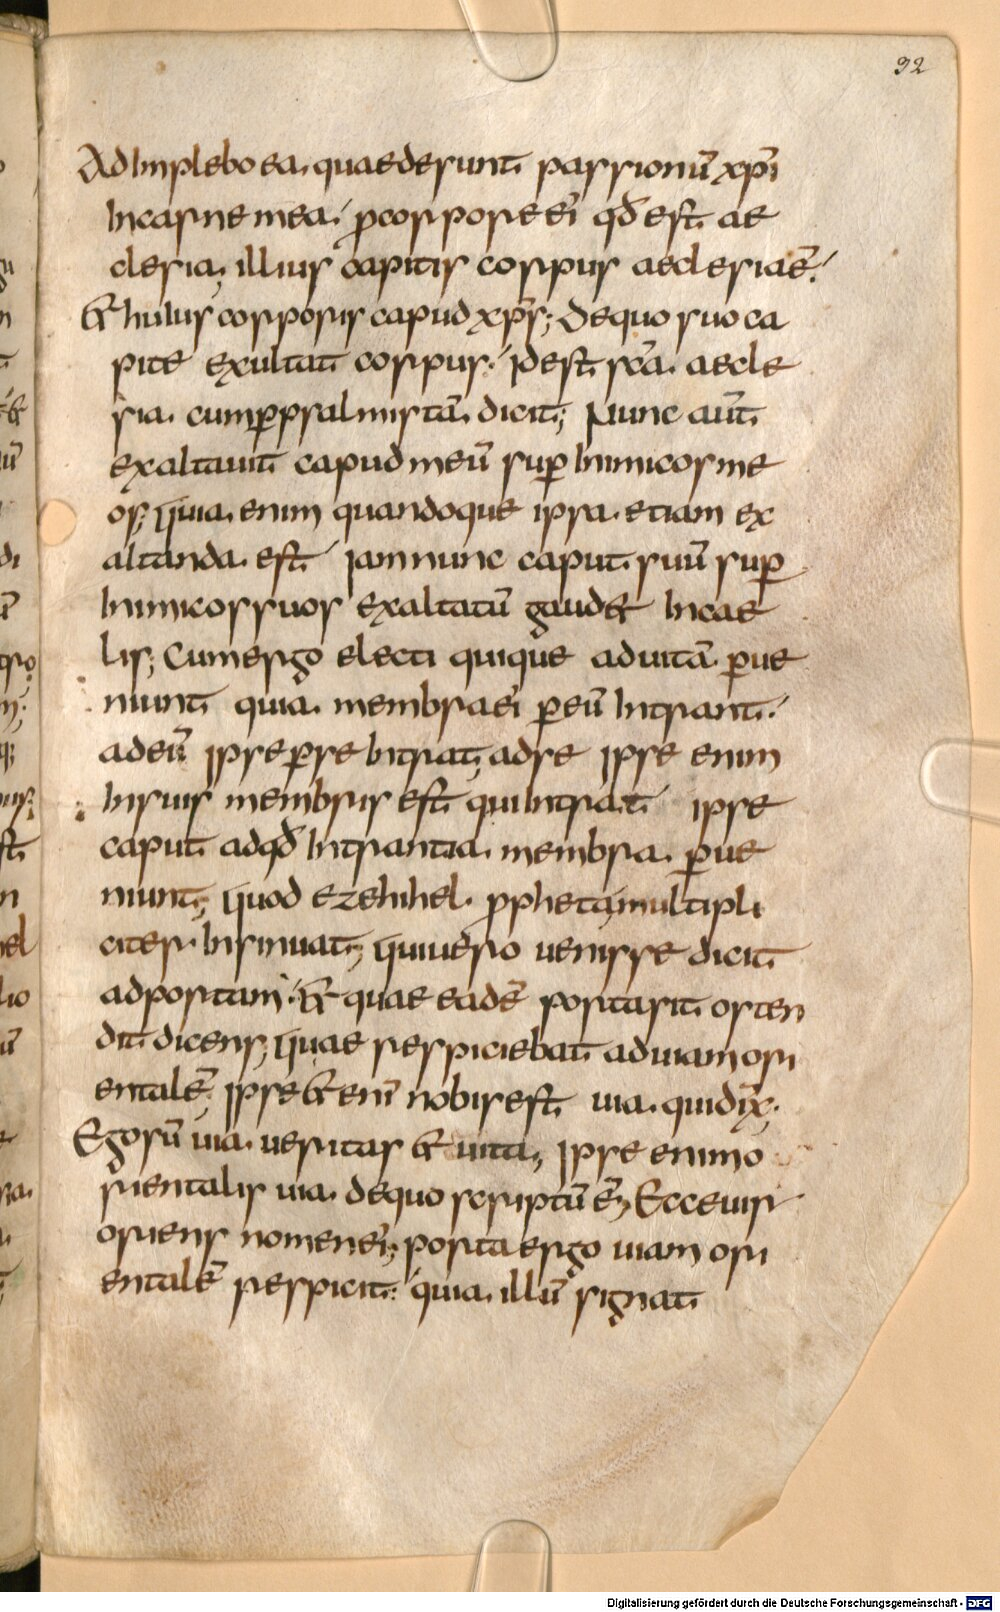 32
Adimplebo ea. quae desunt passionū xp̄i
In carne mea.' p̱ corpore ei' qd̄ est ae
clesia; illius capitis corpus aeclesiae ē.'
& huius corporis capud xp̄s; De quo suo ca
pite exultat corpus.' Id est sc̄a. aecle
sia. cum p̱ psalmistā. dicit; Nunc aūt
exaltauit capud meū sup̱ Inimicos me
os; quia. enim quandoque ipsa. etiam ex
altanda. est' Iam nunc caput suū sup̱
Inimicos suos exaltatū gaud& In cae
lis; Cum ergo electi quique ad uitā. p̱ue
niunt quia. membra ei' p̱ eū Intrant.'
ad eū Ipse p̱ se Intrat; ad se Ipse enim
In suis membris est qui Intrat ipse
caput ad qd̄ Intrantia. membra. p̱ue
niunt; quod ezehihel. p̱pheta; multipli
citer. Insinuat; qui uero uenisse dicit
ad portam.' & quae eadē porta sit osten
dit dicens; quae respiciebat ad uiam ori
entalē; Ipse & eni nobis est uia. qui dix̄;
Ego sū uia. ueritas & uita; Ipse enim o
rientalis uia. de quo scriptū ē; Ecce uir
oriens nomen ei'; porta ergo uiam ori
entalē respicit.' quia. illū signat
Digitalisierung gefördert durch die Deutsche Forschungsgemeinschaft - DFG